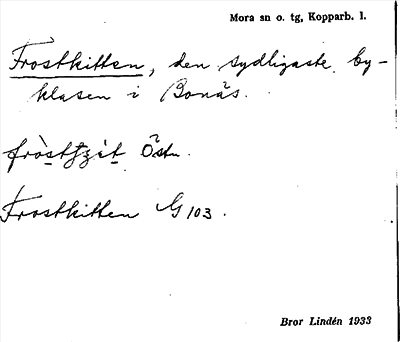 Mora sn o. tg, Kopparb. l.
Frostkitten, den sydligaste by-
klasen i Bonäs.
Östn.
Frostkitten G 103.
Bror Lindén 1933